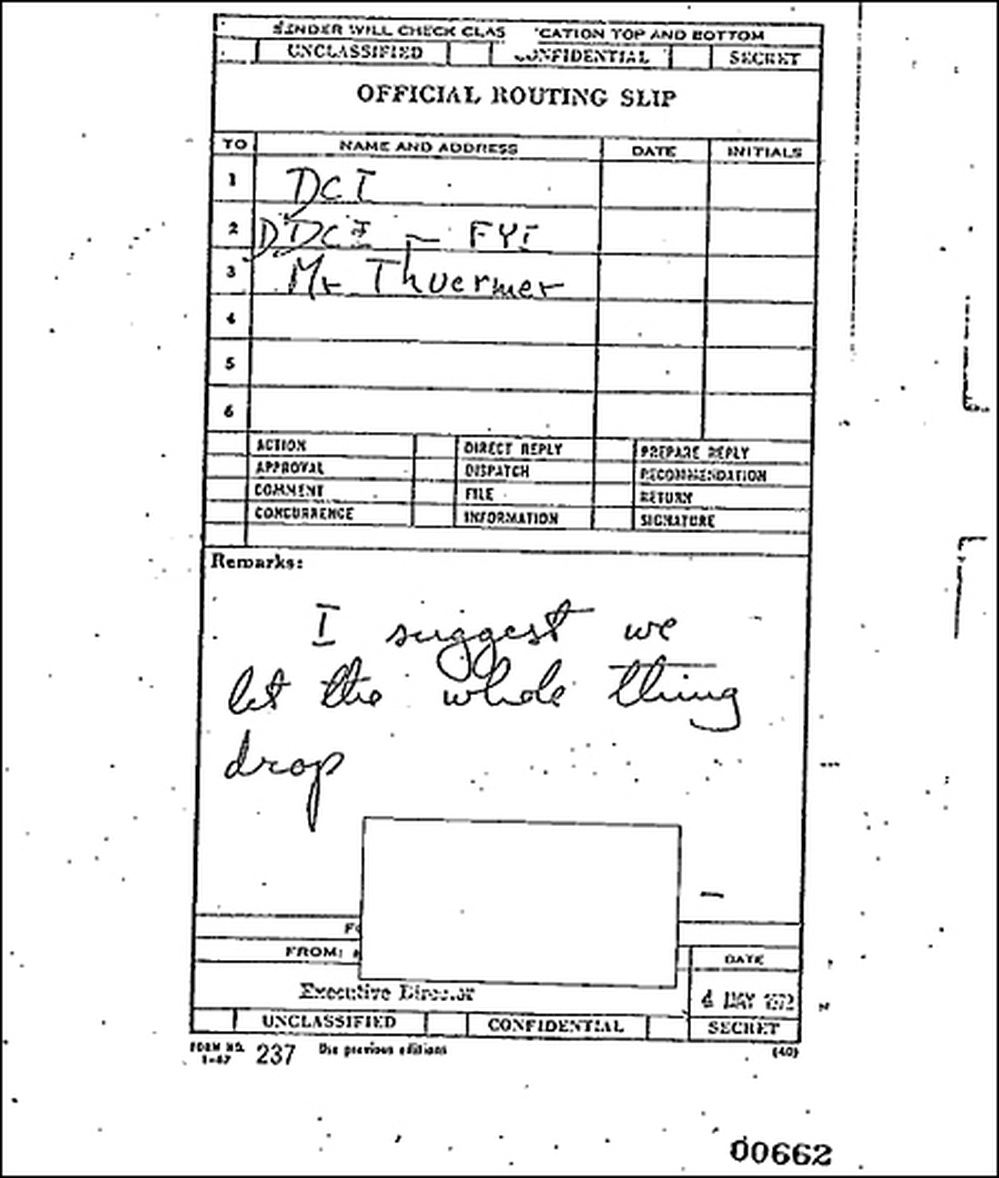 SENDER WILL CHECK CLAS CATION TOP AND BOTTOM
UNCLASSIFIED CONFIDENTIAL SECRET
OFFICIAL ROUTING SLIP
TO NAME AND ADDRESS DATE INITIALS
1 DCI
2 DDCI — FYI
3 Mr Thuermer
4
5
6
ACTION DIRECT REPLY PREPARE REPLY
APPROVAL DISPATCH RECOMMENDATION
COMMENT FILE RETURN
CONCURRENCE INFORMATION SIGNATURE
Remarks:
I suggest we
let the whole thing
drop
FROM: DATE
Executive Director 4 MAY 1972
UNCLASSIFIED CONFIDENTIAL SECRET
FORM NO. 1-67 237 Use previous editions (40)
00662